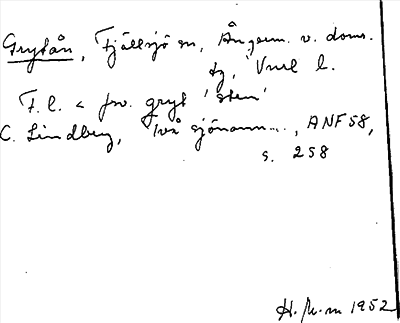 Grytån, Fjällsjö sn, Ångerm. v. doms.
tg, Vnrl l.
F.l. < fsv. gryt 'sten'
C. Lindberg, Två sjönamn..., ANF 58,
s. 258
H. 1952